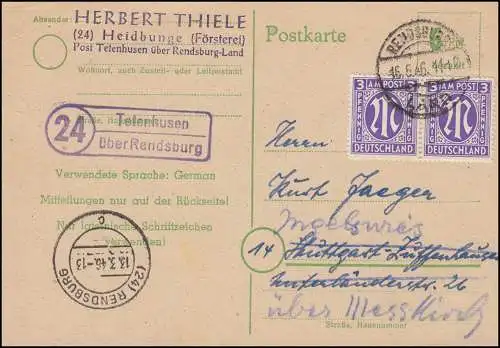 Absender:
HERBERT THIELE
(24) Heidbunge (Försterei)
Post Telenhusen über Rendsburg-Land
Wohnort, auch Zustell- oder Leitpostamt
24
Telenhusen
über Rendsburg
Straße, Hausnummer
Verwendete Sprache: German
Mitteilungen nur auf der Rückseite!
Nur lateinische Schriftzeichen
verwenden!
(24) RENDSBURG
13.3.46.-13
c
Postkarte
RENDSBURG
3 AM POST 3 AM POST
PFENNIG PFENNIG
DEUTSCHLAND DEUTSCHLAND
Herrn
Kurt Jaeger
14 Stuttgart Zuffenhausen
26
über Messkirch
Straße, Hausnummer